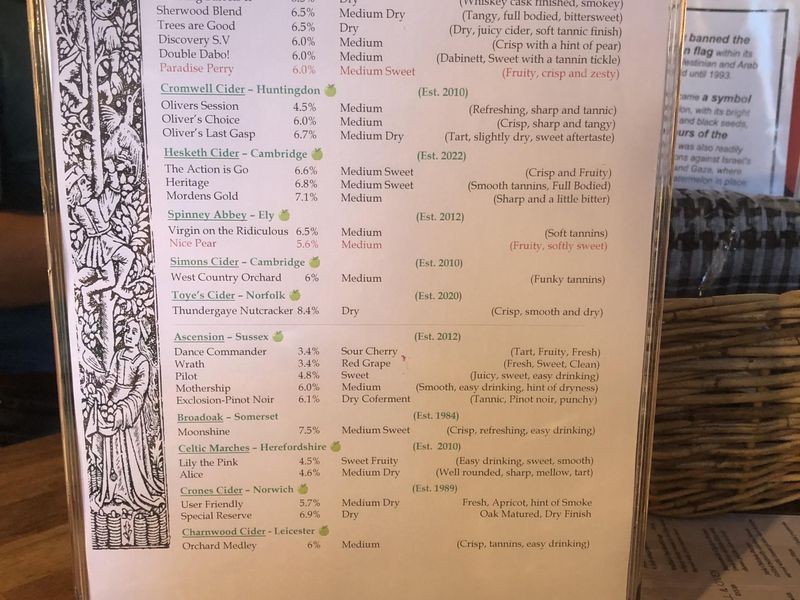 6.5% Dry (Whiskey cask finished, smokey)
Sherwood Blend 6.5% Medium Dry (Tangy, full bodied, bittersweet)
Trees are Good 6.5% Dry (Dry, juicy cider, soft tannic finish)
Discovery S.V 6.0% Medium (Crisp with a hint of pear)
Double Dabo! 6.0% Medium (Dabinett, Sweet with a tannin tickle)
Paradise Perry 6.0% Medium Sweet (Fruity, crisp and zesty)
Cromwell Cider – Huntingdon (Est. 2010)
Olivers Session 4.5% Medium (Refreshing, sharp and tannic)
Oliver's Choice 6.0% Medium (Crisp, sharp and tangy)
Oliver's Last Gasp 6.7% Medium Dry (Tart, slightly dry, sweet aftertaste)
Hesketh Cider – Cambridge (Est. 2022)
The Action is Go 6.6% Medium Sweet (Crisp and Fruity)
Heritage 6.8% Medium Sweet (Smooth tannins, Full Bodied)
Mordens Gold 7.1% Medium (Sharp and a little bitter)
Spinney Abbey – Ely (Est. 2012)
Virgin on the Ridiculous 6.5% Medium (Soft tannins)
Nice Pear 5.6% Medium (Fruity, softly sweet)
Simons Cider – Cambridge (Est. 2010)
West Country Orchard 6% Medium (Funky tannins)
Toye's Cider – Norfolk (Est. 2020)
Thundergaye Nutcracker 8.4% Dry (Crisp, smooth and dry)
Ascension – Sussex (Est. 2012)
Dance Commander 3.4% Sour Cherry (Tart, Fruity, Fresh)
Wrath 3.4% Red Grape (Fresh, Sweet, Clean)
Pilot 4.8% Sweet (Juicy, sweet, easy drinking)
Mothership 6.0% Medium (Smooth, easy drinking, hint of dryness)
Exclosion-Pinot Noir 6.1% Dry Coferment (Tannic, Pinot noir, punchy)
Broadoak – Somerset (Est. 1984)
Moonshine 7.5% Medium Sweet (Crisp, refreshing, easy drinking)
Celtic Marches – Herefordshire (Est. 2010)
Lily the Pink 4.5% Sweet Fruity (Easy drinking, sweet, smooth)
Alice 4.6% Medium Dry (Well rounded, sharp, mellow, tart)
Crones Cider – Norwich (Est. 1989)
User Friendly 5.7% Medium Dry Fresh, Apricot, hint of Smoke
Special Reserve 6.9% Dry Oak Matured, Dry Finish
Charnwood Cider - Leicester
Orchard Medley 6% Medium (Crisp, tannins, easy drinking)
banned the
flag within its
and Arab
until 1993.
a symbol
with its bright
and black seeds,
of the
was also readily
against Israel's
and Gaza, where
in place